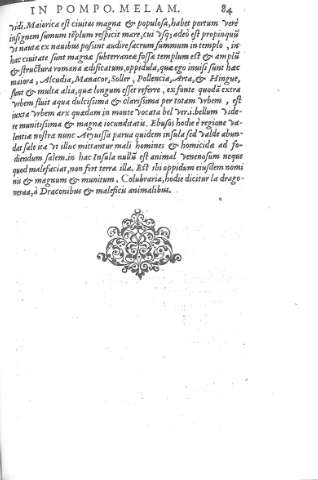 IN POMPO. MELAM. 84
uidi. Maiorica est ciuitas magna & populosa, habet portum verè
insignem summum tẽplum respicit mare, cui vsq; adeò est propinquũ
vt nautæ ex nauibus possint audire sacrum summum in templo, in
hac ciuitate sunt magnæ subterraneæ fossæ templum est & amplũ
& structura romana ædificatum, oppidula, quæ ego inuisi sunt hæc
maiora, Alcudia, Manacor, Soller, Pollencia, Arta, & Hingue,
sunt & multa alia, quæ longum esset referre, ex fonte quodã extra
vrbem fluit aqua dulcissima & clarissima per totam vrbem, est
iuxta vrbem arx quædam in monte vocata bel ver. i. bellum vide-
re munitissima & magnæ iocunditatis. Ebusos hodie è regione va-
lentiæ nostræ nunc Ayuissa parua quidem insula sed valde abun-
dat sale ita vt illuc mittantur mali homines & homicidæ ad fo-
diendum salem. in hac Insula nullũ est animal venenosum neque
quod malefaciat, non fert terra illa. Est ibi oppidum eiusdem nomi
nis & magnum & munitum. Colubraria, hodie dicitur la drago-
neraa, à Draconibus & maleficis animalibus.